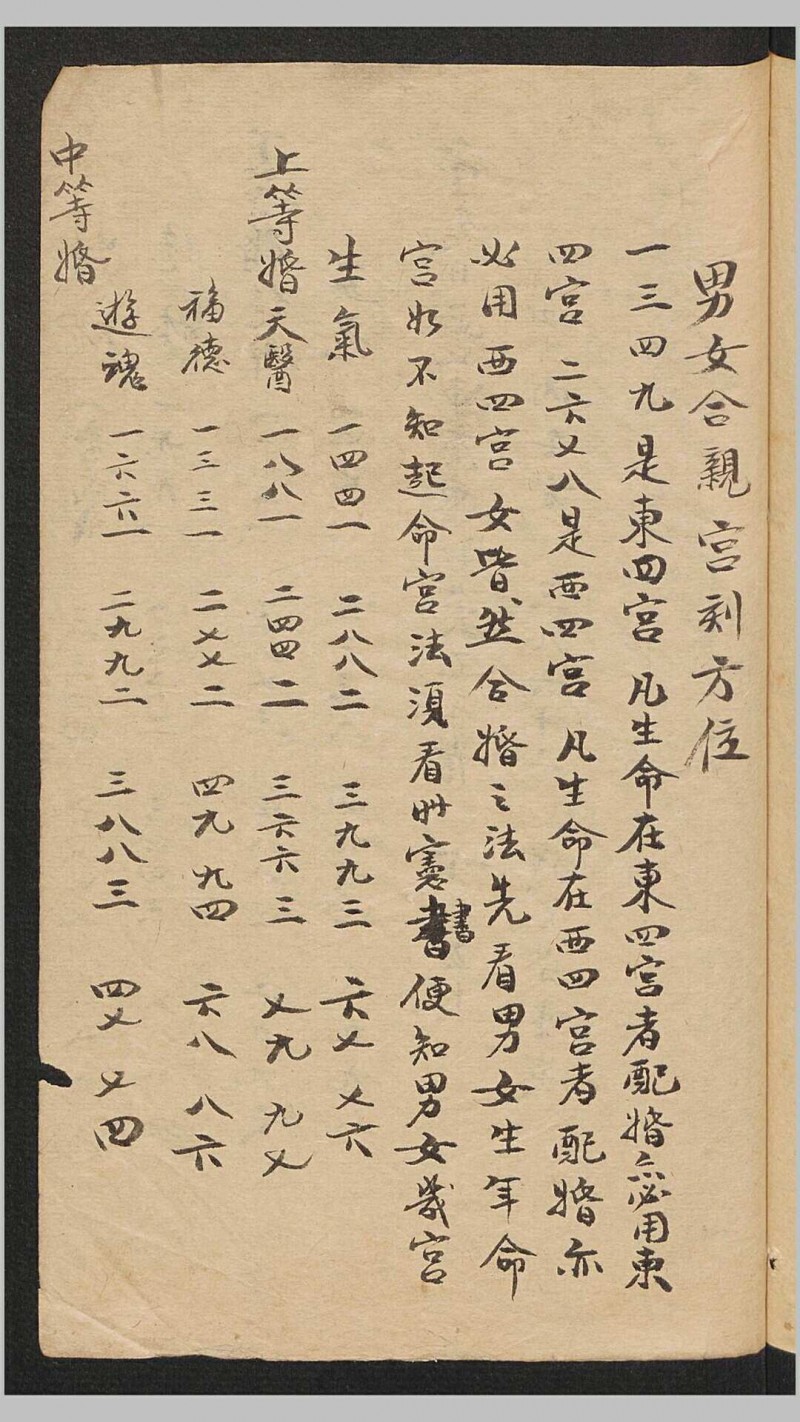 男女合親宮刻方位
一三四九是東四宮 凡生命在東四宮者配婚亦必用東
四宮 二六乂八是西四宮 凡生命在西四宮者配婚亦
必用西四宮女皆然合婚之法先看男女生年命
宮如不知起命宮法須看時憲書便知男女幾宮
生氣 一四四一 二八八二 三九九三 六乂乂六
上等婚天醫 一八八一 二四四二 三六六三 乂九九乂
福德 一三三一 二乂乂二 四九九四 六八八六
遊魂 一六六一 二九九二 三八八三 四乂乂四
中等婚